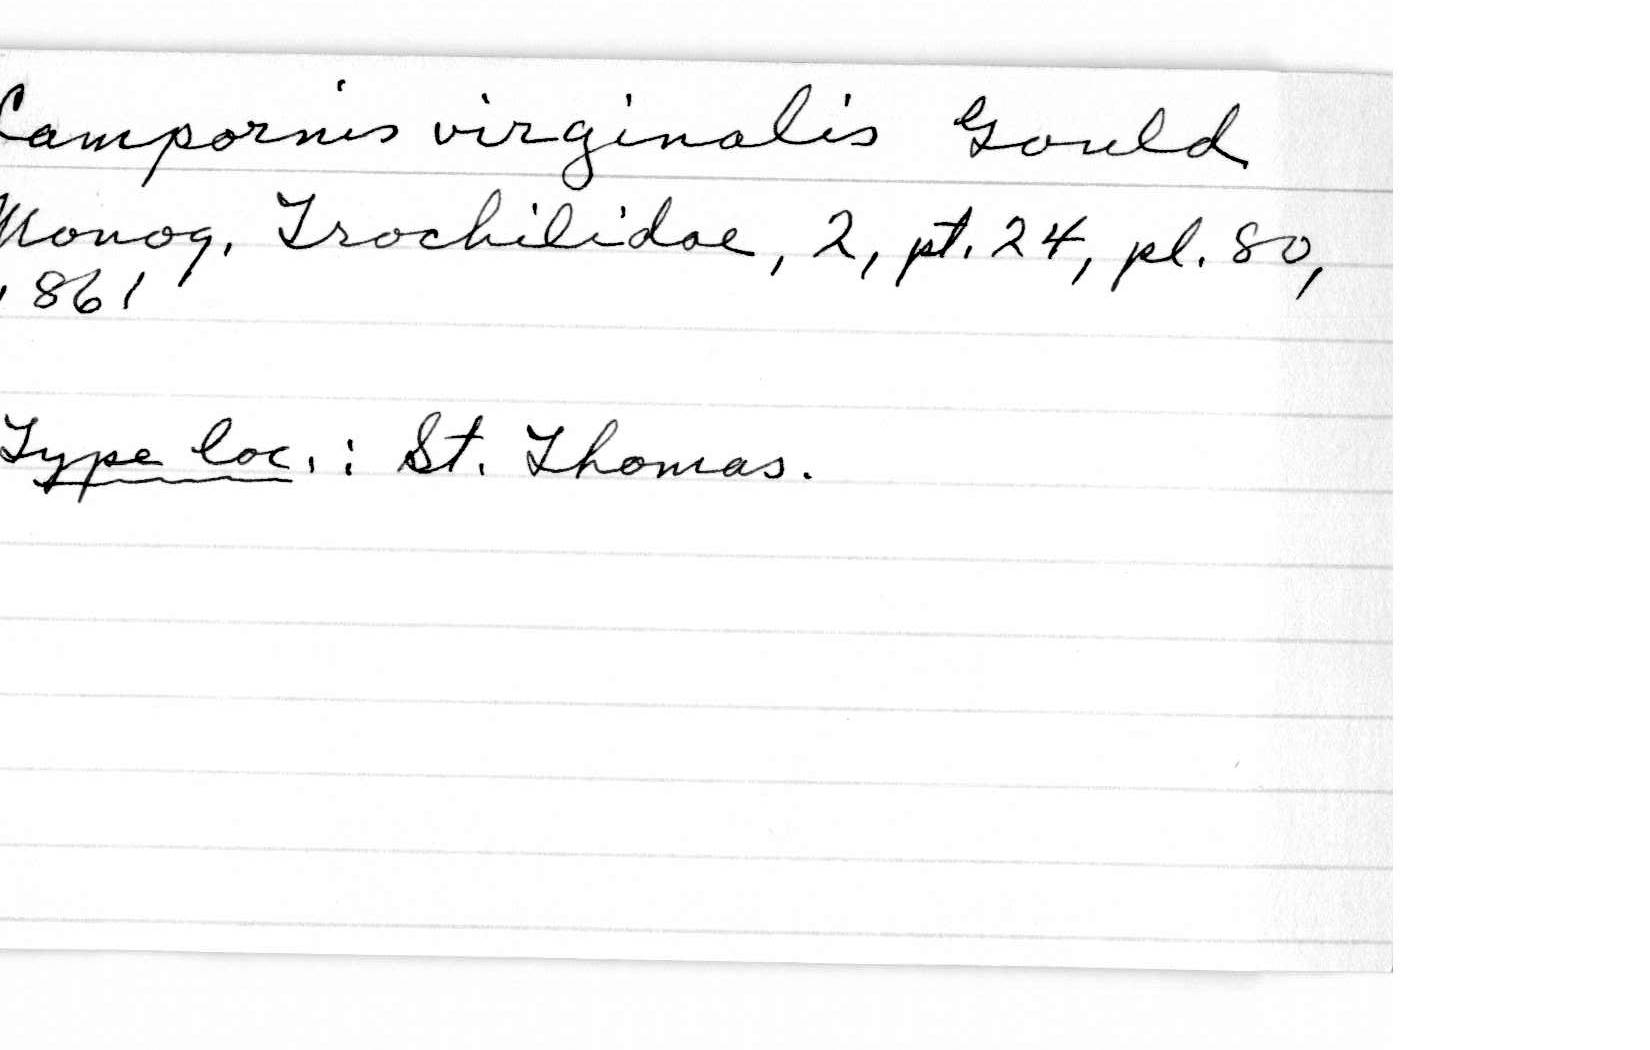 Campornis virginalis Gould
Monog. Trochilidae, 2, pt. 24, pl. 80,
1861
Type loc.: St. Thomas.